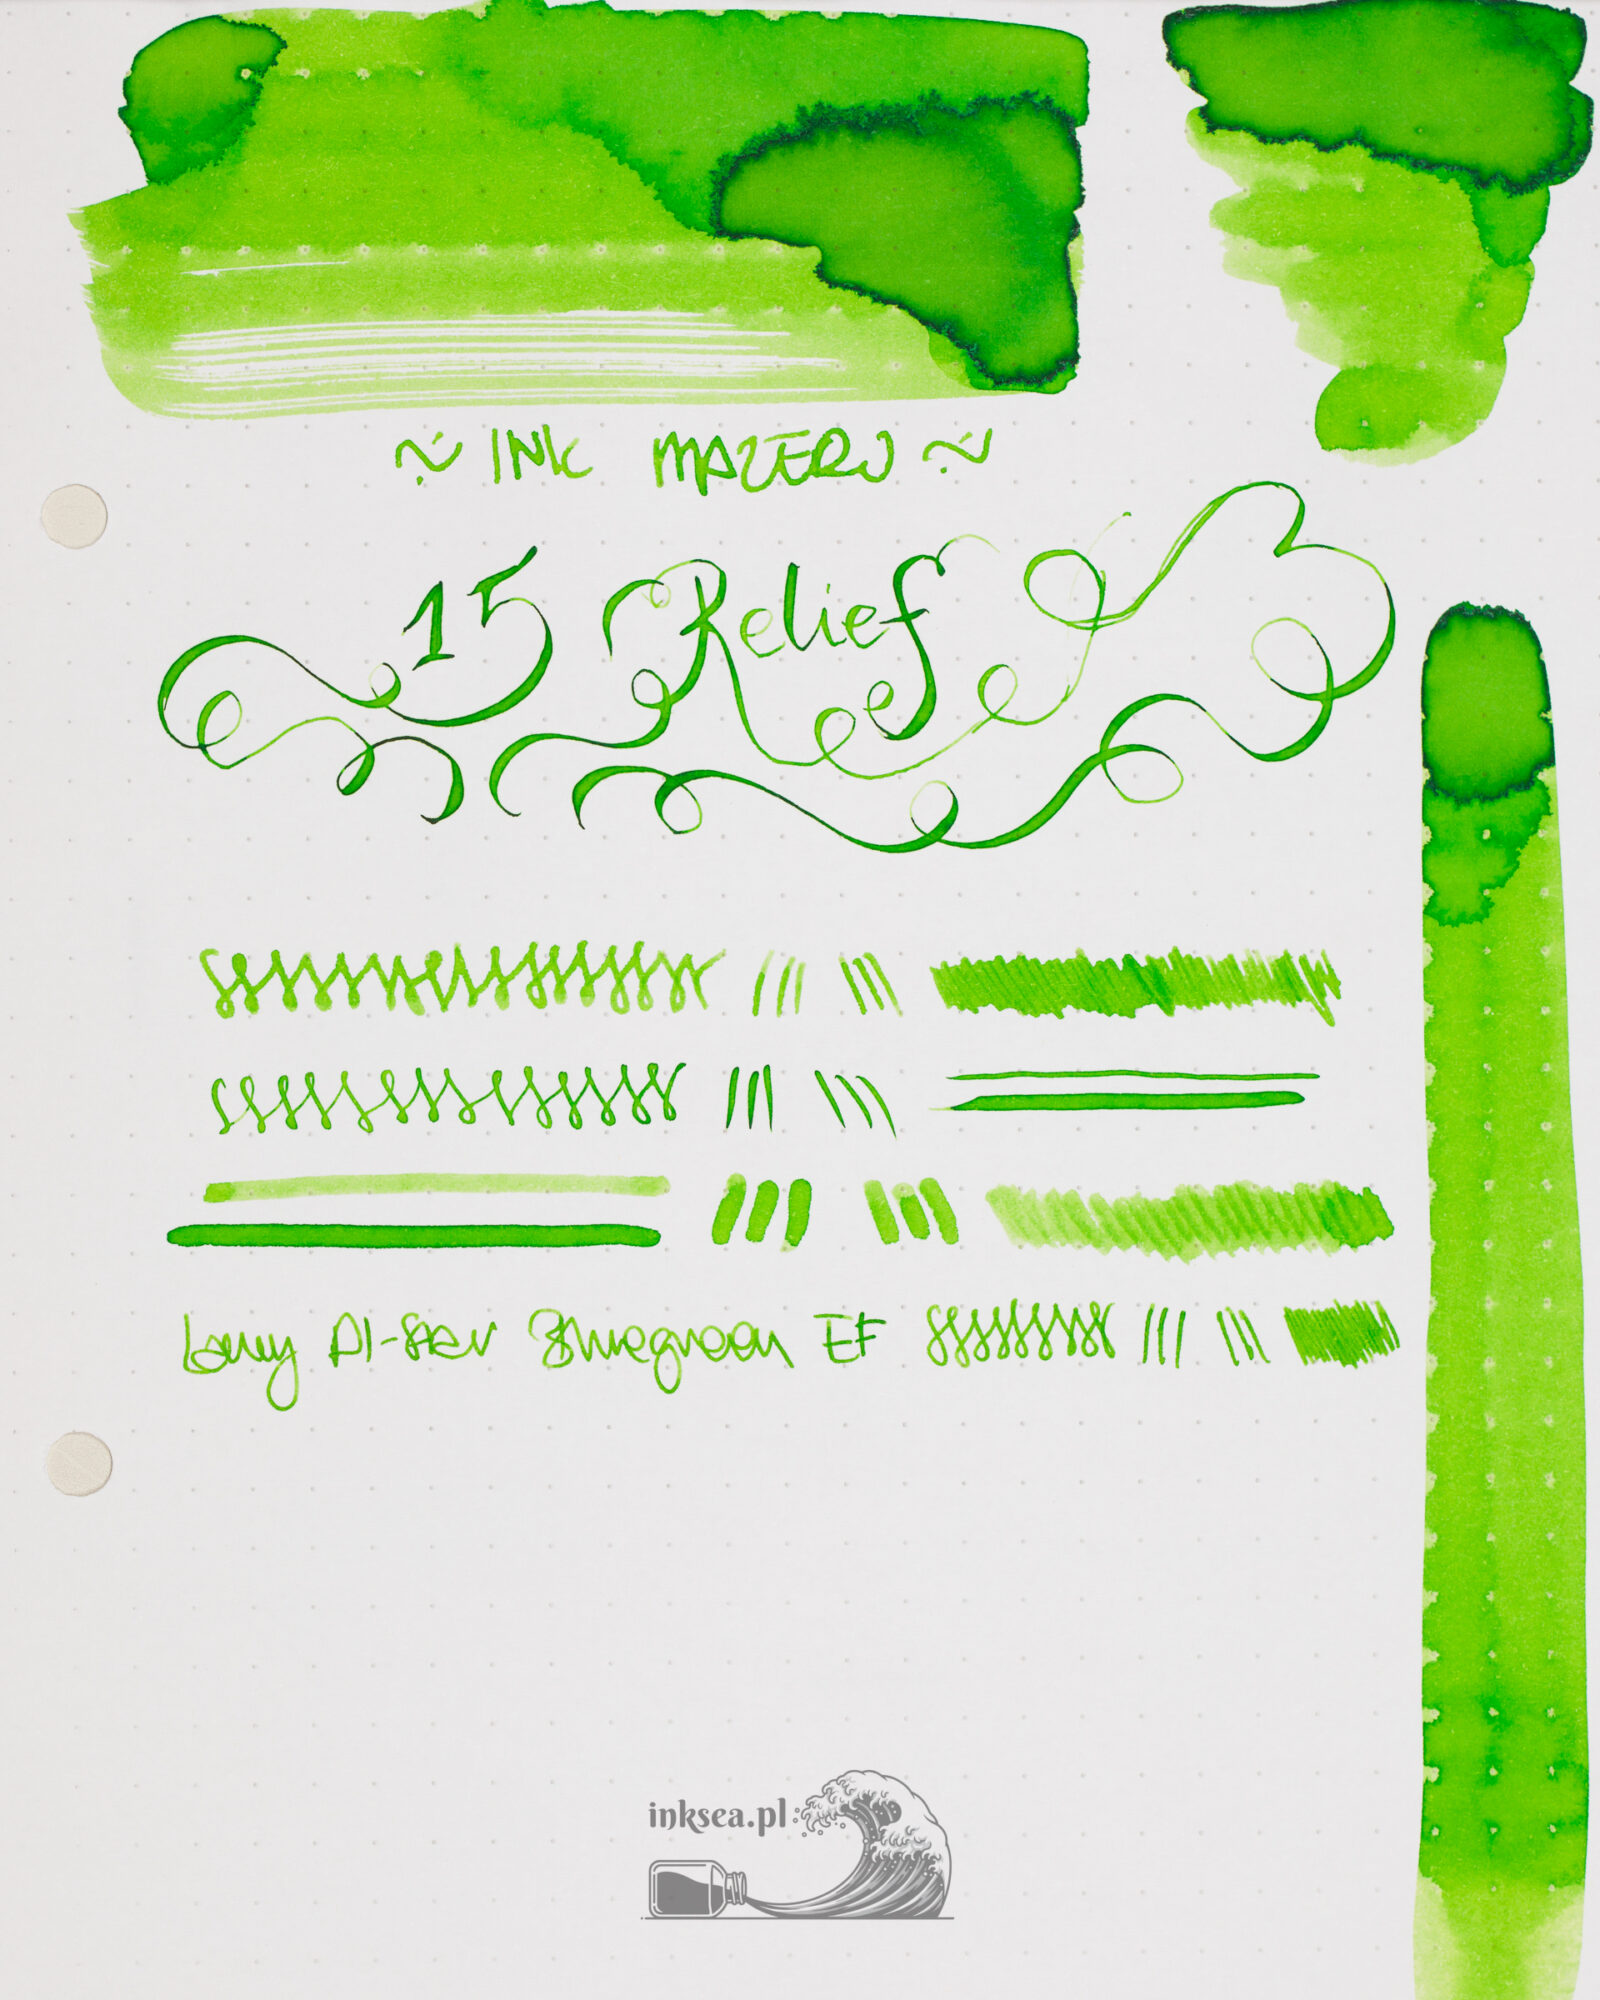 ~ INK MAZERU ~
15 Relief
Lamy Al-Star Bluegreen EF
inksea.pl